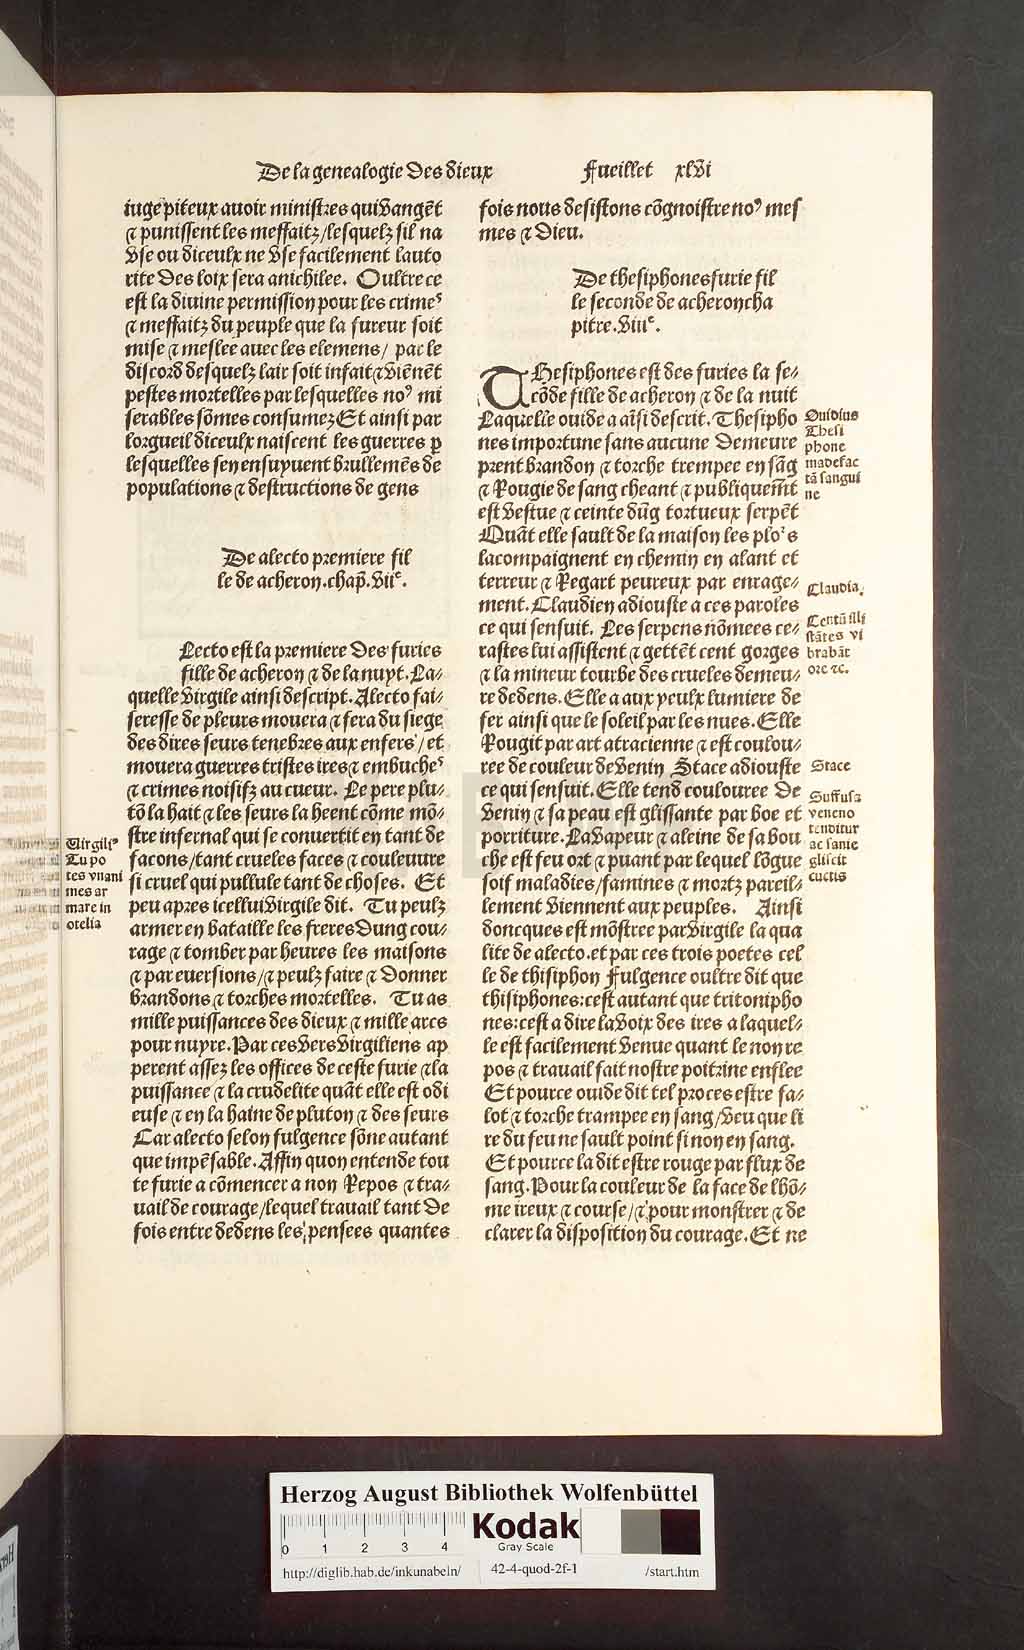 De la genealogie des dieux
Fueillet xlvi
iuge piteux auoir ministres qui vangẽt
⁊ punissent les meffaitz/lesquelz sil na
vse ou diceulx ne vse facilement lauto
rite des loix sera anichilee. Oultre ce
est la diuine permission pour les crimeˢ
⁊ meffaitz du peuple que la fureur soit
mise ⁊ meslee auec les elemens/ par le
discord desquelz lair soit infait ⁊ viẽnẽt
pestes mortelles par lesquelles noꝰ mi
serables sõmes consumez Et ainsi par
lorgueil diceulx naiscent les guerres p̱
lesquelles sen ensuyuent brullemẽs de
populations ⁊ destructions de gens
De alecto premiere fil
le de acheron.chap̃.viiᵉ.
Lecto est la premiere des furies
fille de acheron ⁊ de la nuyt.La/
quelle virgile ainsi descript.Alecto fai/
seresse de pleurs mouera ⁊ fera du siege
des dires seurs tenebres aux enfers/et
mouera guerres tristes ires ⁊ embucheˢ
⁊ crimes noisifz au cueur. Le pere plu/
tõ la hait ⁊ les seurs la heent cõme mõ/
stre infernal qui se conuertit en tant de
facons/tant crueles faces ⁊ couleuure
si cruel qui pullule tant de choses. Et
peu apres icellui virgile dit. Tu peulz
armer en bataille les freres dung cou/
rage ⁊ tomber par heures les maisons
⁊ par euersions/⁊ peulz faire ⁊ donner
brandons ⁊ torches mortelles. Tu as
mille puissances des dieux ⁊ mille arcs
pour nuyre.Par ces vers virgiliens ap
perent assez les offices de ceste furie ⁊ la
puissance ⁊ la crudelite quãt elle est odi
euse ⁊ en la haine de pluton ⁊ des seurs
Car alecto selon fulgence sõne autant
que impẽsable.Affin quon entende tou
te furie a cõmencer a non repos ⁊ tra/
uail de courage/lequel trauail tant de
fois entre dedens les pensees quantes
Virgiliꝰ
Tu po
tes vnani
mes ar
mare in
otelia
fois nous desistons cõgnoistre noꝰ mes
mes ⁊ dieu.
De thesiphones furie fil
le seconde de acheron cha
pitre.viiiᵉ.
THesiphones est des furies la se/
cõde fille de acheron ⁊ de la nuit
Laquelle ouide a aĩsi descrit.Thesipho
nes importune sans aucune demeure
prent brandon ⁊ torche trempee en sãg
⁊ rougie de sang cheant ⁊ publiquem̃t
est vestue ⁊ ceinte dũg tortueux serpẽt
Quãt elle sault de la maison les ploʳs
lacompaignent en chemin en alant et
terreur ⁊ regart peureux par enrage/
ment.Claudien adiouste a ces paroles
ce qui sensuit. Les serpens nõmees ce/
rastes lui assistent ⁊ gettẽt cent gorges
⁊ la mineur tourbe des crueles demeu/
re dedens.Elle a aux yeulx lumiere de
fer ainsi que le soleil par les nues.Elle
Rougit par art atracienne ⁊ est coulou/
ree de couleur de venin Stace adiouste
ce qui sensuit.Elle tend coulouree de
venin ⁊ sa peau est glissante par boe et
porriture.La vapeur ⁊ aleine de sa bou
che est feu ort ⁊ puant par lequel lõgue
soif maladies/famines ⁊ mortz pareil/
lement viennent aux peuples. Ainsi
doncques est mõstree par virgile la qua
lite de alecto.et par ces trois poetes cel
le de thisiphon Fulgence oultre dit que
thisiphones:cest autant que tritonipho
nes:cest a dire la voix des ires a laquel/
le est facilement venue quant le non re
pos ⁊ trauail fait nostre poitrine enflee
Et pource ouide dit tel proces estre fa/
lot ⁊ torche trampee en sang/veu que li
re du feu ne sault point si non en sang.
Et pource la dit estre rouge par flux de
sang.Pour la couleur de la face de lhõ/
me ireux ⁊ course/⁊ pour monstrer ⁊ de
clarer la disposition du courage.Et ne
Ouidius
Thesi
phone
madefac
tã sangui
ne
Claudia.
Centũ illi
stãtes vi
brabãt
ore ⁊c.
Stace
Suffusa
veneno
tenditur
ac sanie
gliscit
cuctis
Herzog August Bibliothek Wolfenbüttel
Kodak
Gray Scale
0 1 2 3 4
http://diglib.hab.de/inkunabeln/ 42-4-quod-2f-1 /start.htm
HAB